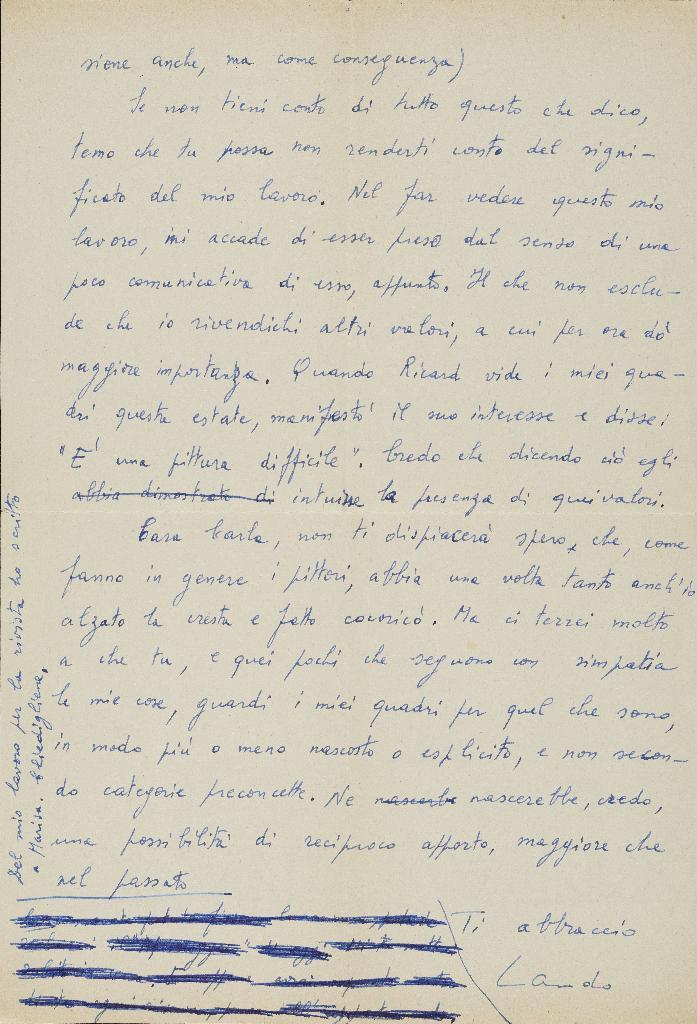 sione anche, ma come conseguenza)
Se non tieni conto di tutto questo che dico,
temo che tu possa non renderti conto del signi-
ficato del mio lavoro. Nel far vedere questo mio
lavoro, mi accade di esser preso dal senso di una
poco comunicativa di esso, appunto. Il che non esclu-
de che io rivendichi altri valori, a cui per ora dò
maggiore importanza. Quando Ricard vide i miei qua-
dri questa estate, manifestò il suo interesse e disse:
"E' una pittura difficile". Credo che dicendo ciò egli
abbia dimostrato di intuisse la presenza di quei valori.
Cara Carla, non ti dispiacerà spero, che, come
fanno in genere i pittori, abbia una volta tanto anch'io
alzato la cresta e fatto cocoricò. Ma ci terrei molto
a che tu, e quei pochi che seguono con simpatia
le mie cose, guardi i miei quadri per quel che sono,
in modo più o meno nascosto o esplicito, e non secon-
do categorie preconcette. Ne nascerebbe, credo,
una possibilità di reciproco apporto, maggiore che
nel passato
Ti abbraccio
Lando
Del mio lavoro per la rivista ho scritto
a Marisa. Chiedigliene.